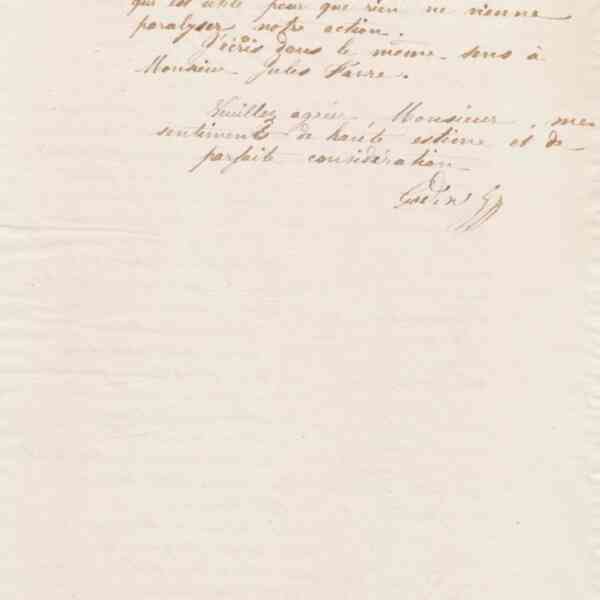 qui est utile pour que rien ne vienne
paralyser notre action.
J'écris dans le même sens à
Monsieur Jules Favre.
Veuillez agréer, Monsieur, mes
sentiments de haute estime et de
parfaite considération
Godin